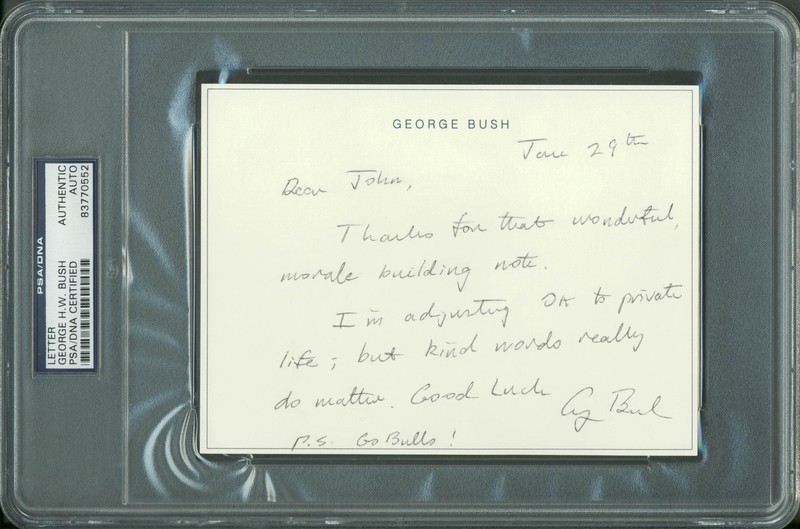 PSA/DNA
LETTER AUTHENTIC
GEORGE H.W. BUSH AUTO
PSA/DNA CERTIFIED 83770552
GEORGE BUSH
29th
Dear John,
Thanks for that wonderful,
morale building note.
I'm adjusting OK to private
life; but kind words really
do matter. Good Luck
G Bush
P.S. Go Bulls!